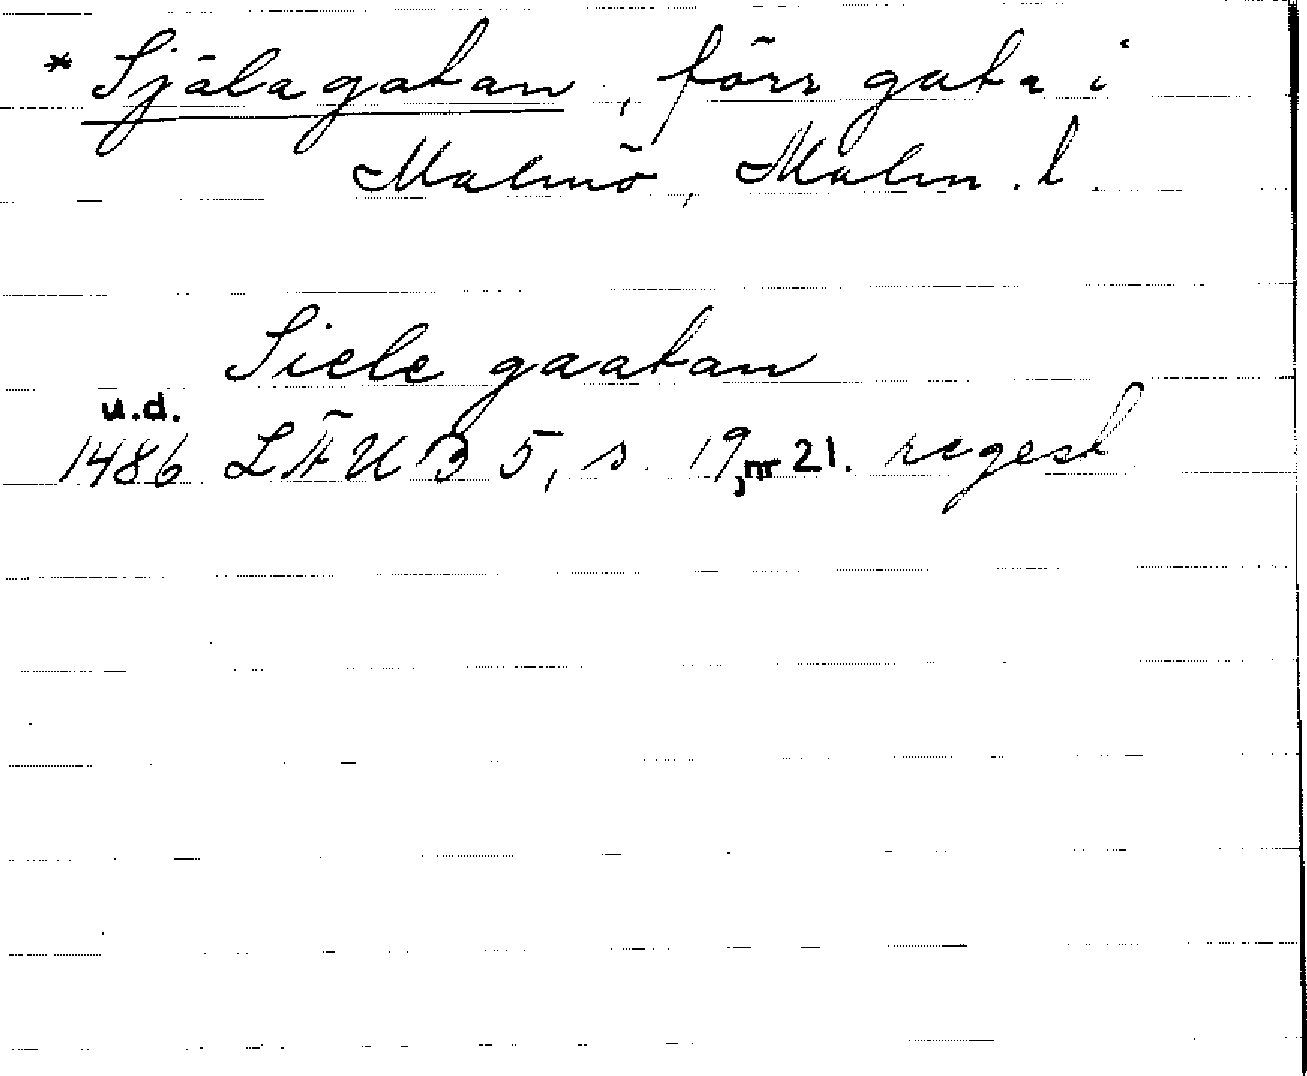 * Själagatan, förr gata i
Malmö, Malm. l.
Siele gaatan
u.d.
1486 LÄUB 5, s. 19, nr 21. regest